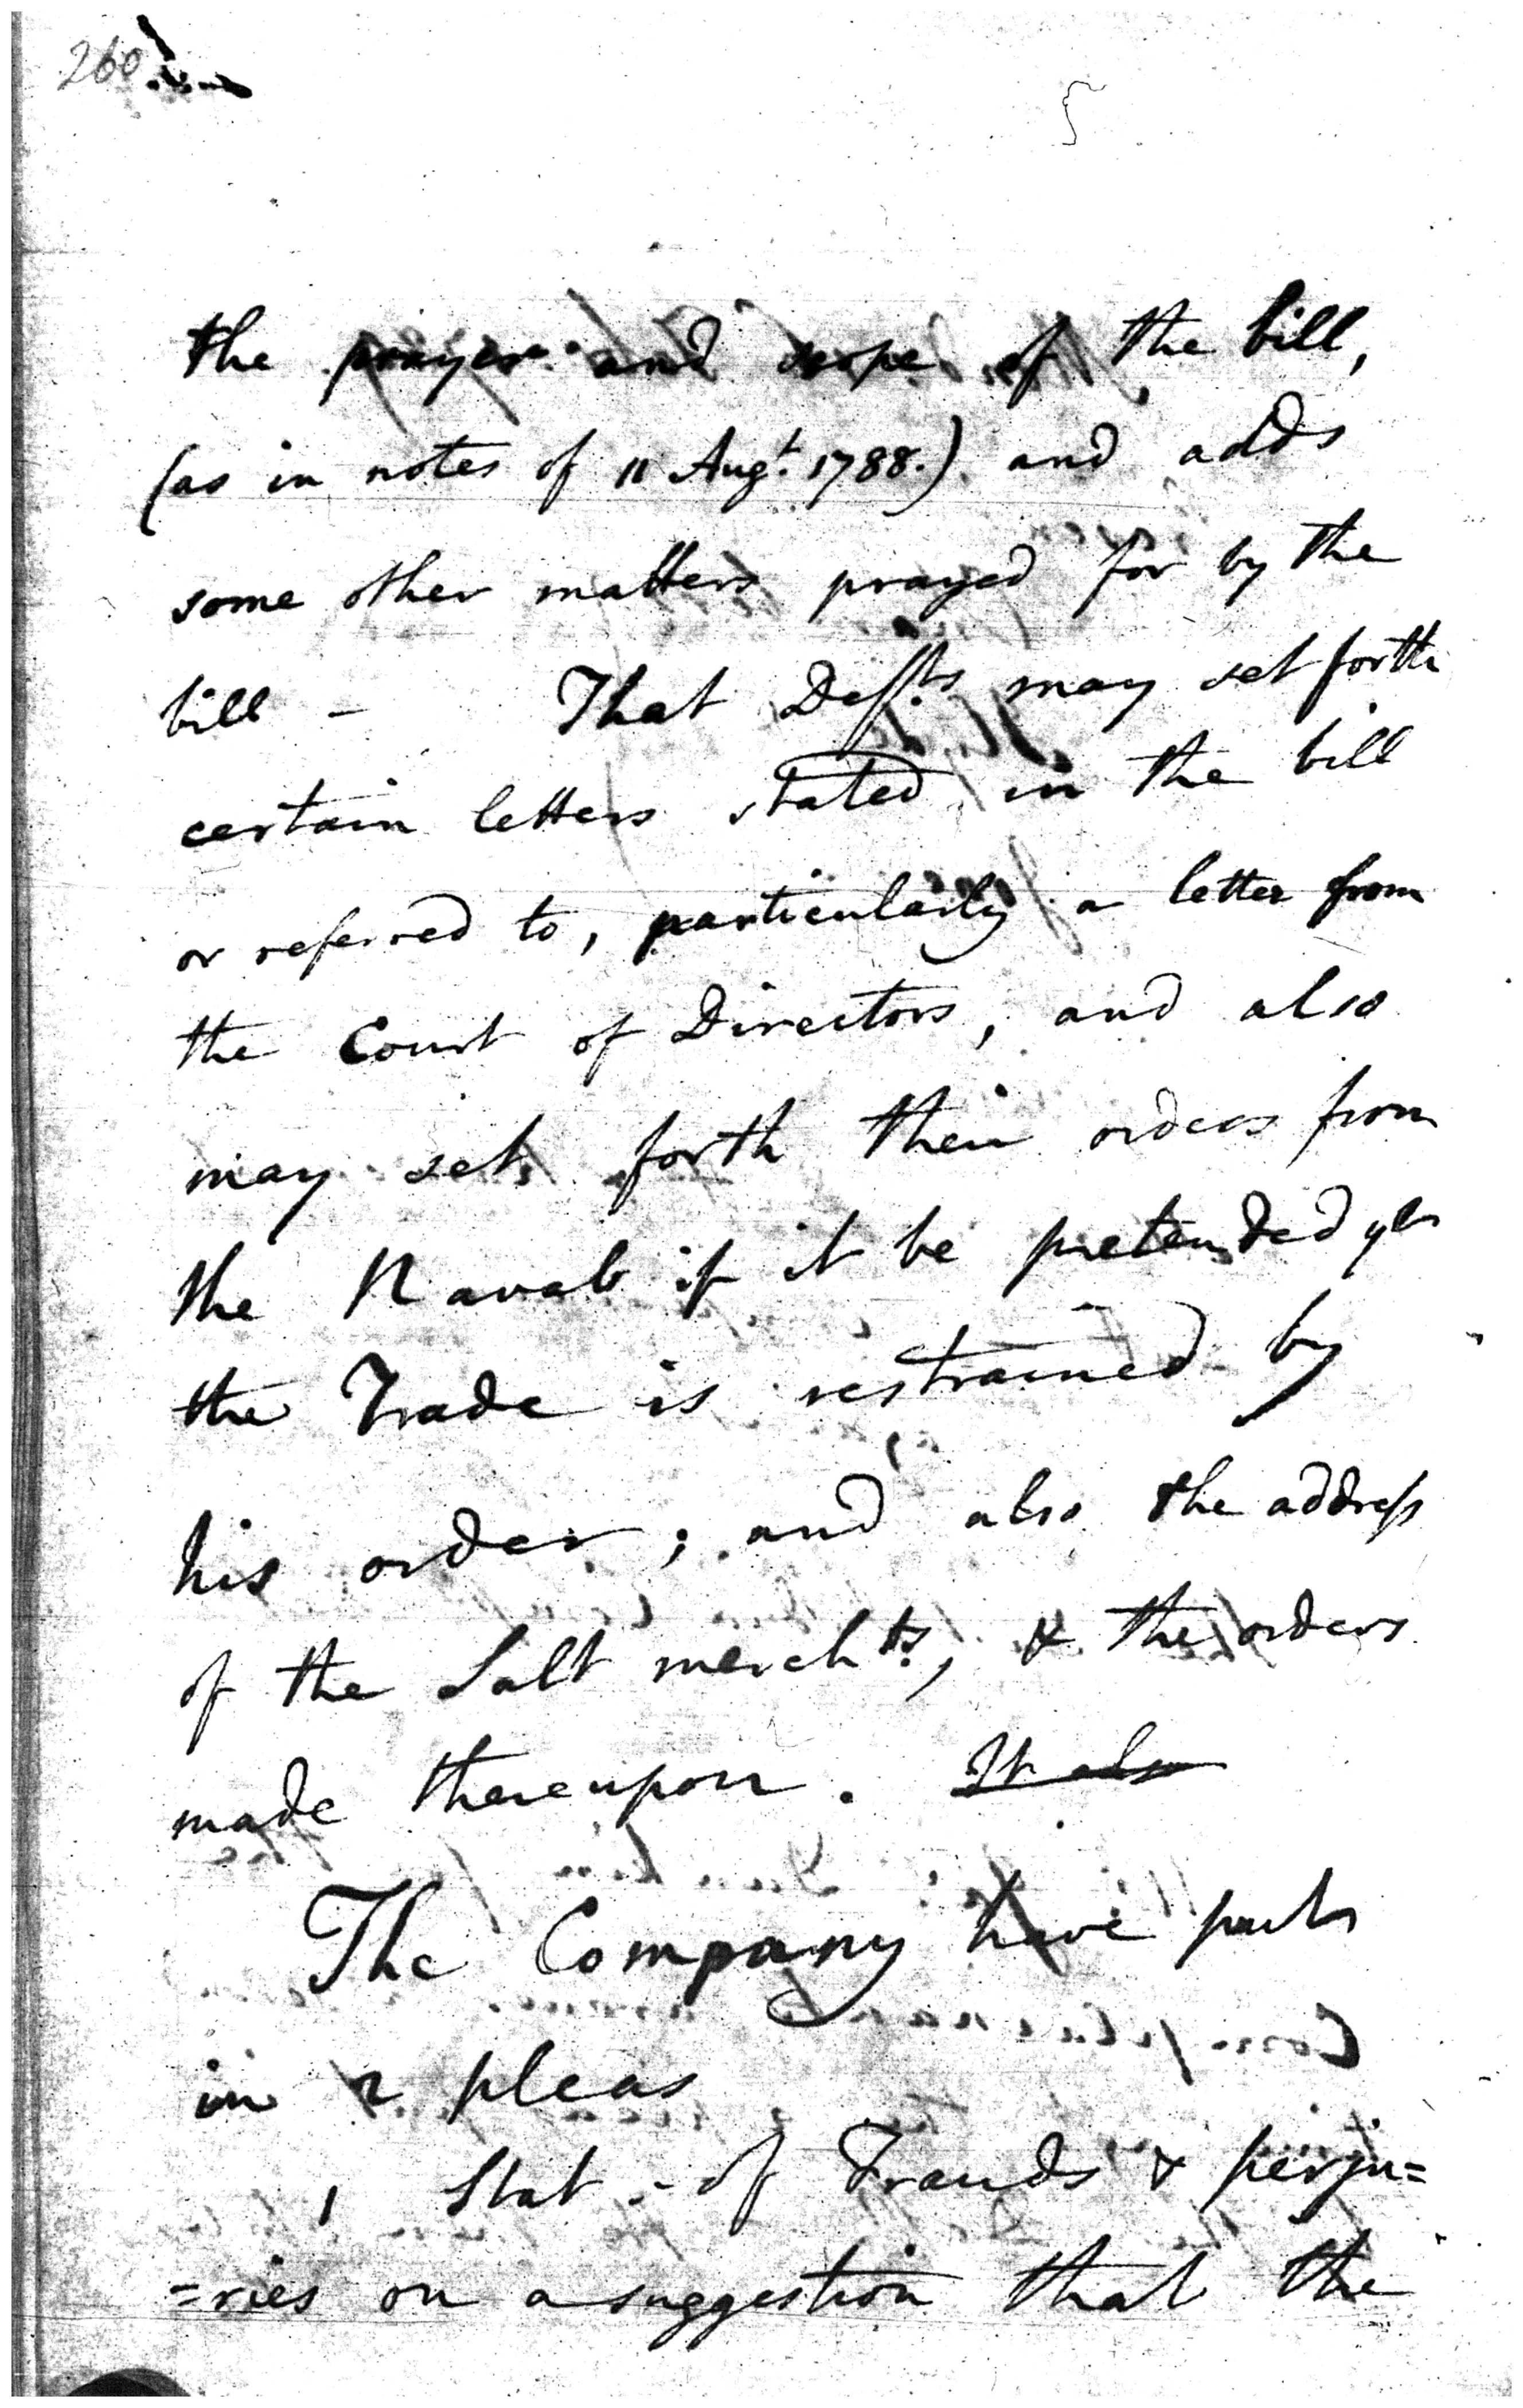 260
5
the prayer and scope of the bill,
(as in notes of 11 Augt. 1788.) and adds
some other matters prayed for by the
bill - That Defts. may set forth
certain letters stated in the bill
or referred to, particularly a letter from
the Court of Directors, and also
may set forth their orders from
the Navab if it be pretended yt
the Trade is restrained by
his order; and also the address
of the Salt merchts., & the orders
made thereupon. It also
The Company have put
in 2 pleas
1 Stat. of Frauds & perju=
=ries on a suggestion that the